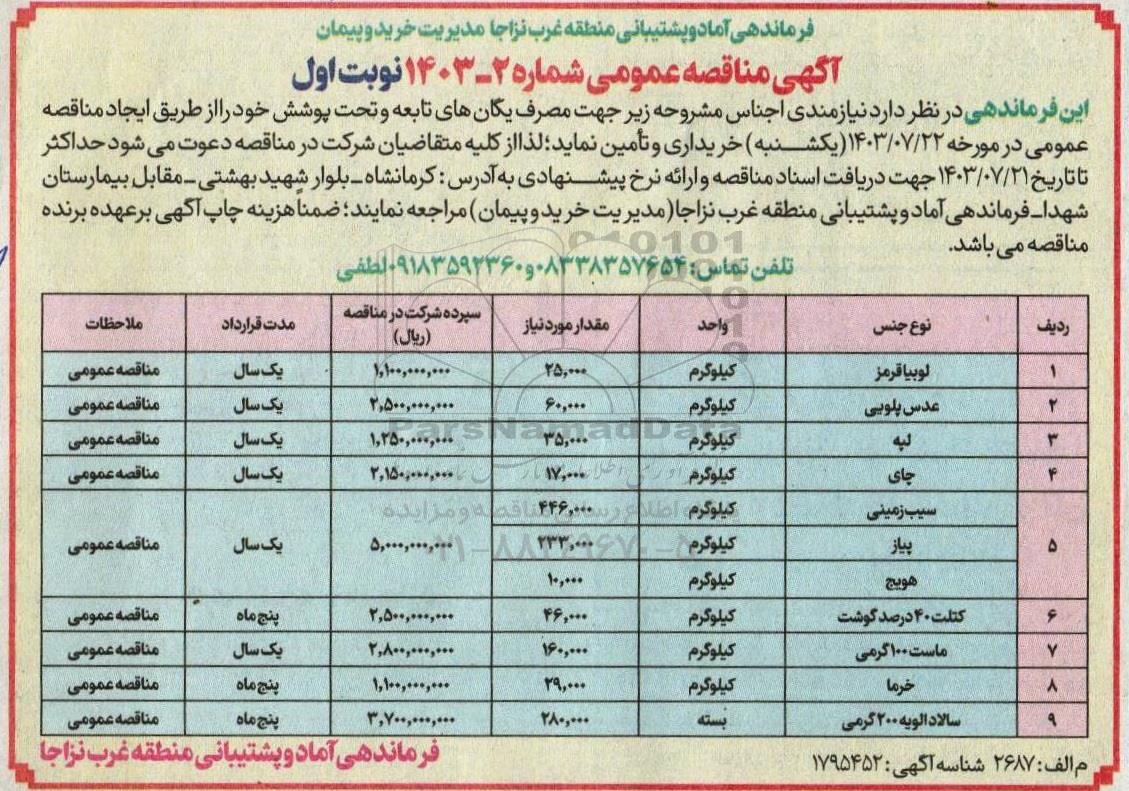 فرماندهی آماد و پشتیبانی منطقه غرب نزاجا مدیریت خرید و پیمان
آگهی مناقصه عمومی شماره ۲-۱۴۰۳ نوبت اول
این فرماندهی در نظر دارد نیازمندی اجناس مشروحه زیر جهت مصرف یگان های تابعه و تحت پوشش خود را از طریق ایجاد مناقصه
عمومی در مورخه ۱۴۰۳/۰۷/۲۲ (یکشنبه) خریداری و تأمین نماید؛ لذا از کلیه متقاضیان شرکت در مناقصه دعوت می شود حداکثر
تا تاریخ ۱۴۰۳/۰۷/۲۱ جهت دریافت اسناد مناقصه و ارائه نرخ پیشنهادی به آدرس: کرمانشاه ـ بلوار شهید بهشتی ـ مقابل بیمارستان
شهدا ـ فرماندهی آماد و پشتیبانی منطقه غرب نزاجا (مدیریت خرید و پیمان) مراجعه نمایند؛ ضمناً هزینه چاپ آگهی بر عهده برنده
مناقصه می باشد.
تلفن تماس: ۰۸۳۳۸۳۵۷۶۵۴ و ۰۹۱۸۳۵۹۲۳۶۰ لطفی
ردیف نوع جنس واحد مقدار مورد نیاز سپرده شرکت در مناقصه (ریال) مدت قرارداد ملاحظات
۱ لوبیا قرمز کیلوگرم ۲۵,۰۰۰ ۱,۱۰۰,۰۰۰,۰۰۰ یک سال مناقصه عمومی
۲ عدس پلویی کیلوگرم ۶۰,۰۰۰ ۲,۵۰۰,۰۰۰,۰۰۰ یک سال مناقصه عمومی
۳ لپه کیلوگرم ۳۵,۰۰۰ ۱,۲۵۰,۰۰۰,۰۰۰ یک سال مناقصه عمومی
۴ چای کیلوگرم ۱۷,۰۰۰ ۲,۱۵۰,۰۰۰,۰۰۰ یک سال مناقصه عمومی
سیب زمینی کیلوگرم ۴۴۶,۰۰۰
۵ پیاز کیلوگرم ۲۳۳,۰۰۰ ۵,۰۰۰,۰۰۰,۰۰۰ یک سال مناقصه عمومی
هویج کیلوگرم ۱۰,۰۰۰
۶ کتلت ۴۰ درصد گوشت کیلوگرم ۴۶,۰۰۰ ۲,۵۰۰,۰۰۰,۰۰۰ پنج ماه مناقصه عمومی
۷ ماست ۱۰۰ گرمی کیلوگرم ۱۶۰,۰۰۰ ۲,۸۰۰,۰۰۰,۰۰۰ یک سال مناقصه عمومی
۸ خرما کیلوگرم ۲۹,۰۰۰ ۱,۱۰۰,۰۰۰,۰۰۰ پنج ماه مناقصه عمومی
۹ سالاد الویه ۲۰۰ گرمی بسته ۲۸۰,۰۰۰ ۳,۷۰۰,۰۰۰,۰۰۰ پنج ماه مناقصه عمومی
م الف: ۲۶۸۷ شناسه آگهی: ۱۷۹۵۴۵۲
فرماندهی آماد و پشتیبانی منطقه غرب نزاجا
ParsNamadData